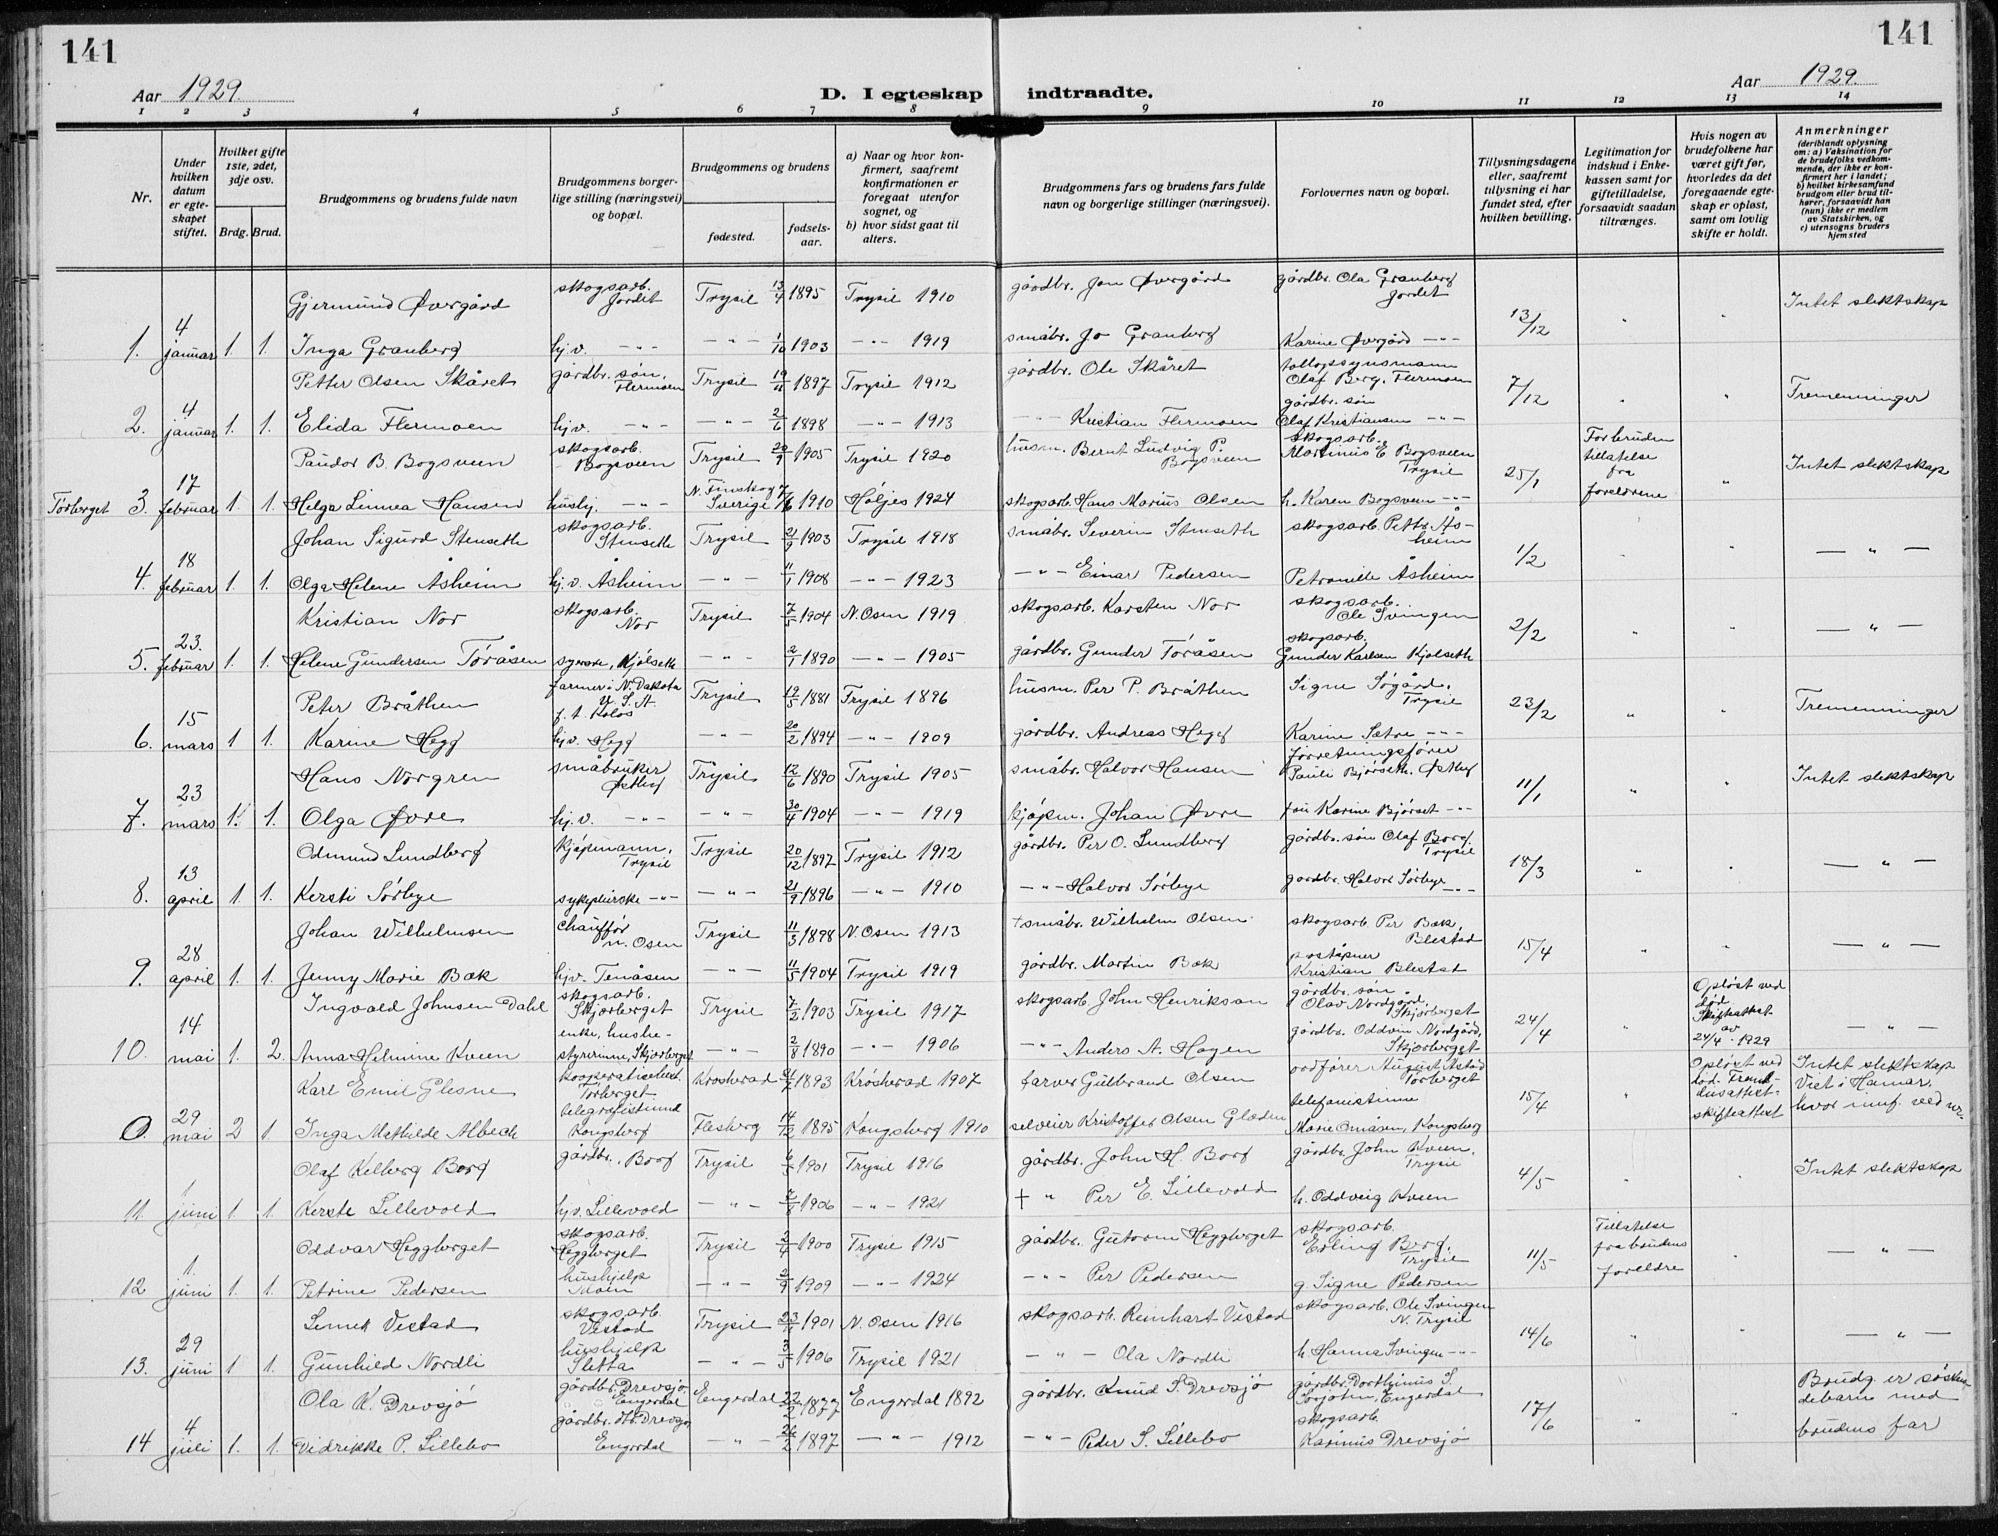 141
141
Aar 1929
D. I egteskap indtraadte.
Aar 1929.
1 2 3 4 5 6 7 8 9 10 11 12 13 14
Nr.
Under hvilken datum er egteskapet stiftet.
Hvilket gifte 1ste, 2det, 3dje osv.
Brdg. Brud.
Brudgommens og brudens fulde navn
Brudgommens borgerlige stilling (næringsvei) og bopæl.
Brudgommens og brudens
fødested.
fødselsaar.
a) Naar og hvor konfirmert, saafremt konfirmationen er foregaat utenfor sognet, og
b) hvor sidst gaat til alters.
Brudgommens fars og brudens fars fulde navn og borgerlige stillinger (næringsvei).
Forlovernes navn og bopæl.
Tillysningsdagene eller, saafremt tillysning ei har fundet sted, efter hvilken bevilling.
Legitimation for indskud i Enkekassen samt for giftetilladelse, forsaavidt saadan tiltrænges.
Hvis nogen av brudefolkene har været gift før, hvorledes da det foregaaende egteskap er opløst, samt om lovlig skifte er holdt.
Anmerkninger (deriblandt oplysning om: a) Vaksination for de brudefolks vedkommende, der ikke er konfirmert her i landet; b) hvilket kirkesamfund brudgom eller brud tilhører, forsaavidt han (hun) ikke er medlem av Statskirken, og c) utensogns bruders hjemsted
Gjermund Øvergård skogsarb. Jordet Trysil 13/4 1895 Trysil 1910 gårdbr. Jon Øvergård gårdbr. Ola Granberg Jordet 13/12 " " Intet slektskap
1. 4 januar 1. 1. Inga Granberg hj.v. -"- -"- 1/10 1903 -"- 1919 småbr. Jo Granberg Karine Øvergård -"-
Petter Olsen Skåret gårdbr. søn, Flermoen Trysil 19/11 1897 Trysil 1912 gårdbr. Ole Skåret tollopssynsmann Olaf Berg, Flermoen 7/12 " " Tremenninger
2. 4 januar 1. 1. Elida Flermoen hj.v. -"- -"- 2/6 1898 -"- 1913 -"- Kristian Flermoen gårdbr. søn Olaf Kristiansen -"-
Paudor B. Bogsveen skogsarb. Bogsveen Trysil 20/9 1905 Trysil 1920 husm. Bernt Ludvig P. Bogsveen skogsarb. Martinius E Bogsveen Trysil 25/1 For bruden tillatelse fra foreldrene " Intet slektskap
Tørberget 3. 17 februar 1. 1. Helga Linnea Hansen hushj. -"- N. Finskog Sverige 7/6 1910 Höljes 1924 skogsarb. Hans Marius Olsen h. Karen Bogsveen -"-
Johan Sigurd Stenseth skogsarb. Stenseth Trysil 21/9 1903 Trysil 1918 småbr. Severin Stenseth skogsarb. Petter Åsheim 1/2 " " — " —
4. 18 februar 1. 1. Olga Helene Åsheim hj.v. Åsheim -"- 11/1 1908 -"- 1923 -"- Einar Pedersen Petronille Åsheim
Kristian Nor skogsarb. Nor Trysil 7/5 1904 N. Osen 1919 skogsarb. Karsten Nor skogsarb. Ole Svingen 2/2 " " — " —
5. 23. februar 1. 1. Helene Gundersen Töråsen syerske, Kjølseth -"- 2/1 1890 -"- 1905 gårdbr. Gunder Töråsen skogsarb. Gunder Karlsen Kjølseth
Peter Bråthen farmer i N. Dakota U.S.A. f. t. Kolos Trysil 19/5 1881 Trysil 1896 husm. Per P. Bråthen Signe Søgård, Trysil 23/2 " " Tremenninger
6. 15 mars 1 1. Karine Hegg hj.v. Hegg -"- 20/2 1894 -"- 1909 gårdbr. Andreas Hegg Karine Sætre -"-
Hans Norgren småbruker Østby Trysil 12/6 1890 Trysil 1905 småbr. Halvor Hansen forretningsfører Pauli Bjørseth. Østby 11/1 " " Intet slektskap
7. 23 mars 1. 1. Olga Øvre hj.v. -"- -"- 30/4 1904 -"- 1919 kjøpm. Johan Øvre fru Karine Bjørset -"-
Odmund Lundberg kjøpmann, Trysil Trysil 20/12 1897 Trysil 1912 gårdbr. Per O. Lundberg gårdbr. søn Olaf Borg, Trysil 18/3 " " — " —
8. 13 april 1 1. Kersti Sørbye sykepleierske -"- -"- 21/9 1896 -"- 1910 -"- Halvor Sørbye gardbr. Halvor Sørbye -"-
Johan Wilhelmsen chauffør N. Osen Trysil 11/3 1898 N. Osen 1913 + småbr. Wilhelm Olsen skogsarb Per Bæk, Blestad 15/4 " " — " —
9. 28 april 1. 1. Jenny Marie Bæk hj.v. Tenåsen -"- 11/5 1904 Trysil 1919 gårdbr. Martin Bæk poståpner Kristian Blestad
Ingvald Johnsen Dahl skogsarb. Skjærberget Trysil 7/2 1903 Trysil 1917 skogsarb. John Henrikson gårdbr. søn Olav Nordgård, Skjærberget 24/4 " Opløst ved død Skifteattest av 24/4 - 1929 — " —
10. 14 mai 1. 2. Anna Helmine Kveen enke, husbestyrerinne, Skjærberget -"- 2/8 1890 -"- 1906 -"- Anders A. Hagen gårdbr. Oddvin Nordgård, Skjærberget
Karl Emil Glesne kooperatisebest. Tørberget Krødsherad 21/7 1893 Krødsherad 1907 farver Gulbrand Olsen ordfører August Åstad Tørberget 15/4 " Opløst ved død. skifteattest Intet slektskap Viet i Hamar,
0. 29 mai 2 1. Inga Mathilde Albech Kongsberg Flesberg 14/12 1895 Kongsberg 1910 Kristoffer Olsen Glæden telefonistinne Marie Omåsen, Kongsberg
Olaf Kelberg Borg gårdbr., Borg Trysil 6/5 1901 Trysil 1916 gårdbr. John H. Borg gårdbr. John Kveen, Trysil 4/5 " " Intet slektskap
11. 1 juni 1. 1. Kersti Lillevold hj.v. Lillevold -"- 7/1 1906 -"- 1921 + " Per E. Lillevold h. Oddveig Kveen
Oddvar Heggberget skogsarb. Heggberget Trysil 2/4 1900 Trysil 1915 gårdbr. Gutorm Heggberget skogsarb. Erling Berg, Trysil 11/5 Tillatelse fra brudens foreldre " — " —
12 1. juni 1. 1. Petrine Pedersen hushjelp Moen -"- 2/9 1909 -"- 1924 -"- Per Pedersen g. Signe Pedersen
Simen Vestad skogsarb. Vestad Trysil 23/1 1901 N. Osen 1916 skogsarb. Reinhart Vestad skogsarb. Ole Svingen N. Trysil 14/6 " " — " —
13. 29 juni 1 1. Gunhild Nordli hushjelp Sletta -"- 3/5 1906 Trysil 1921 — " — Ola Nordli h. Hanna Svingen -"-
Ola K. Drevsjø gårdbr. Drevsjø, Engerdal Engerdal 22/2 1877 Engerdal 1892 gårdbr. Knud S. Drevsjø gårdbr. Dorthinus S. Engerdal 17/6 " " Brudg. er søskendebarn med brudens far
14 4 juli 1. 1. Vidrikke P. Lillebo gårdbr. dtr. Drevsjø, Engerdal -"- 26/2 1897 — " — 1912 -"- Peder S. Lillebo skogsarb. Karinus Drevsjø